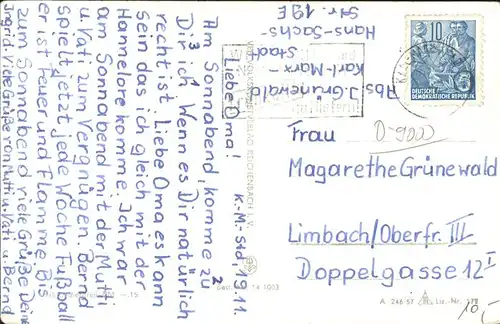 Abs. J. Grünewald
Karl-Marx-
Stadt
Hans-Sachs-
Str. 19E
K.-M.-Std 19.11.
Liebe Oma!
Am Sonnabend, komme zu
Dir ich. Wenn es Dir natürlich
recht ist. Liebe Oma es kann
sein das ich gleich mit der
Hannelore komme. Ich war
am Sonnabend mit der Mutti
u. Vati zum Vergnügen. Bernd
spielt jetzt jede Woche Fußball
er ist Feuer und Flamme. Bis
zum Sonnabend viele Grüße Deine
Ingrid. Viele Grüße von Mutti u. Vati u. Bernd
3
2
10
DEUTSCHE
DEMOKRATISCHE REPUBLIK
Frau
D-9000
Magarethe Grünewald
Limbach/Oberfr. III
Doppelgasse 12 I
REICHENBACH
14 1003
A 246/57
10,-